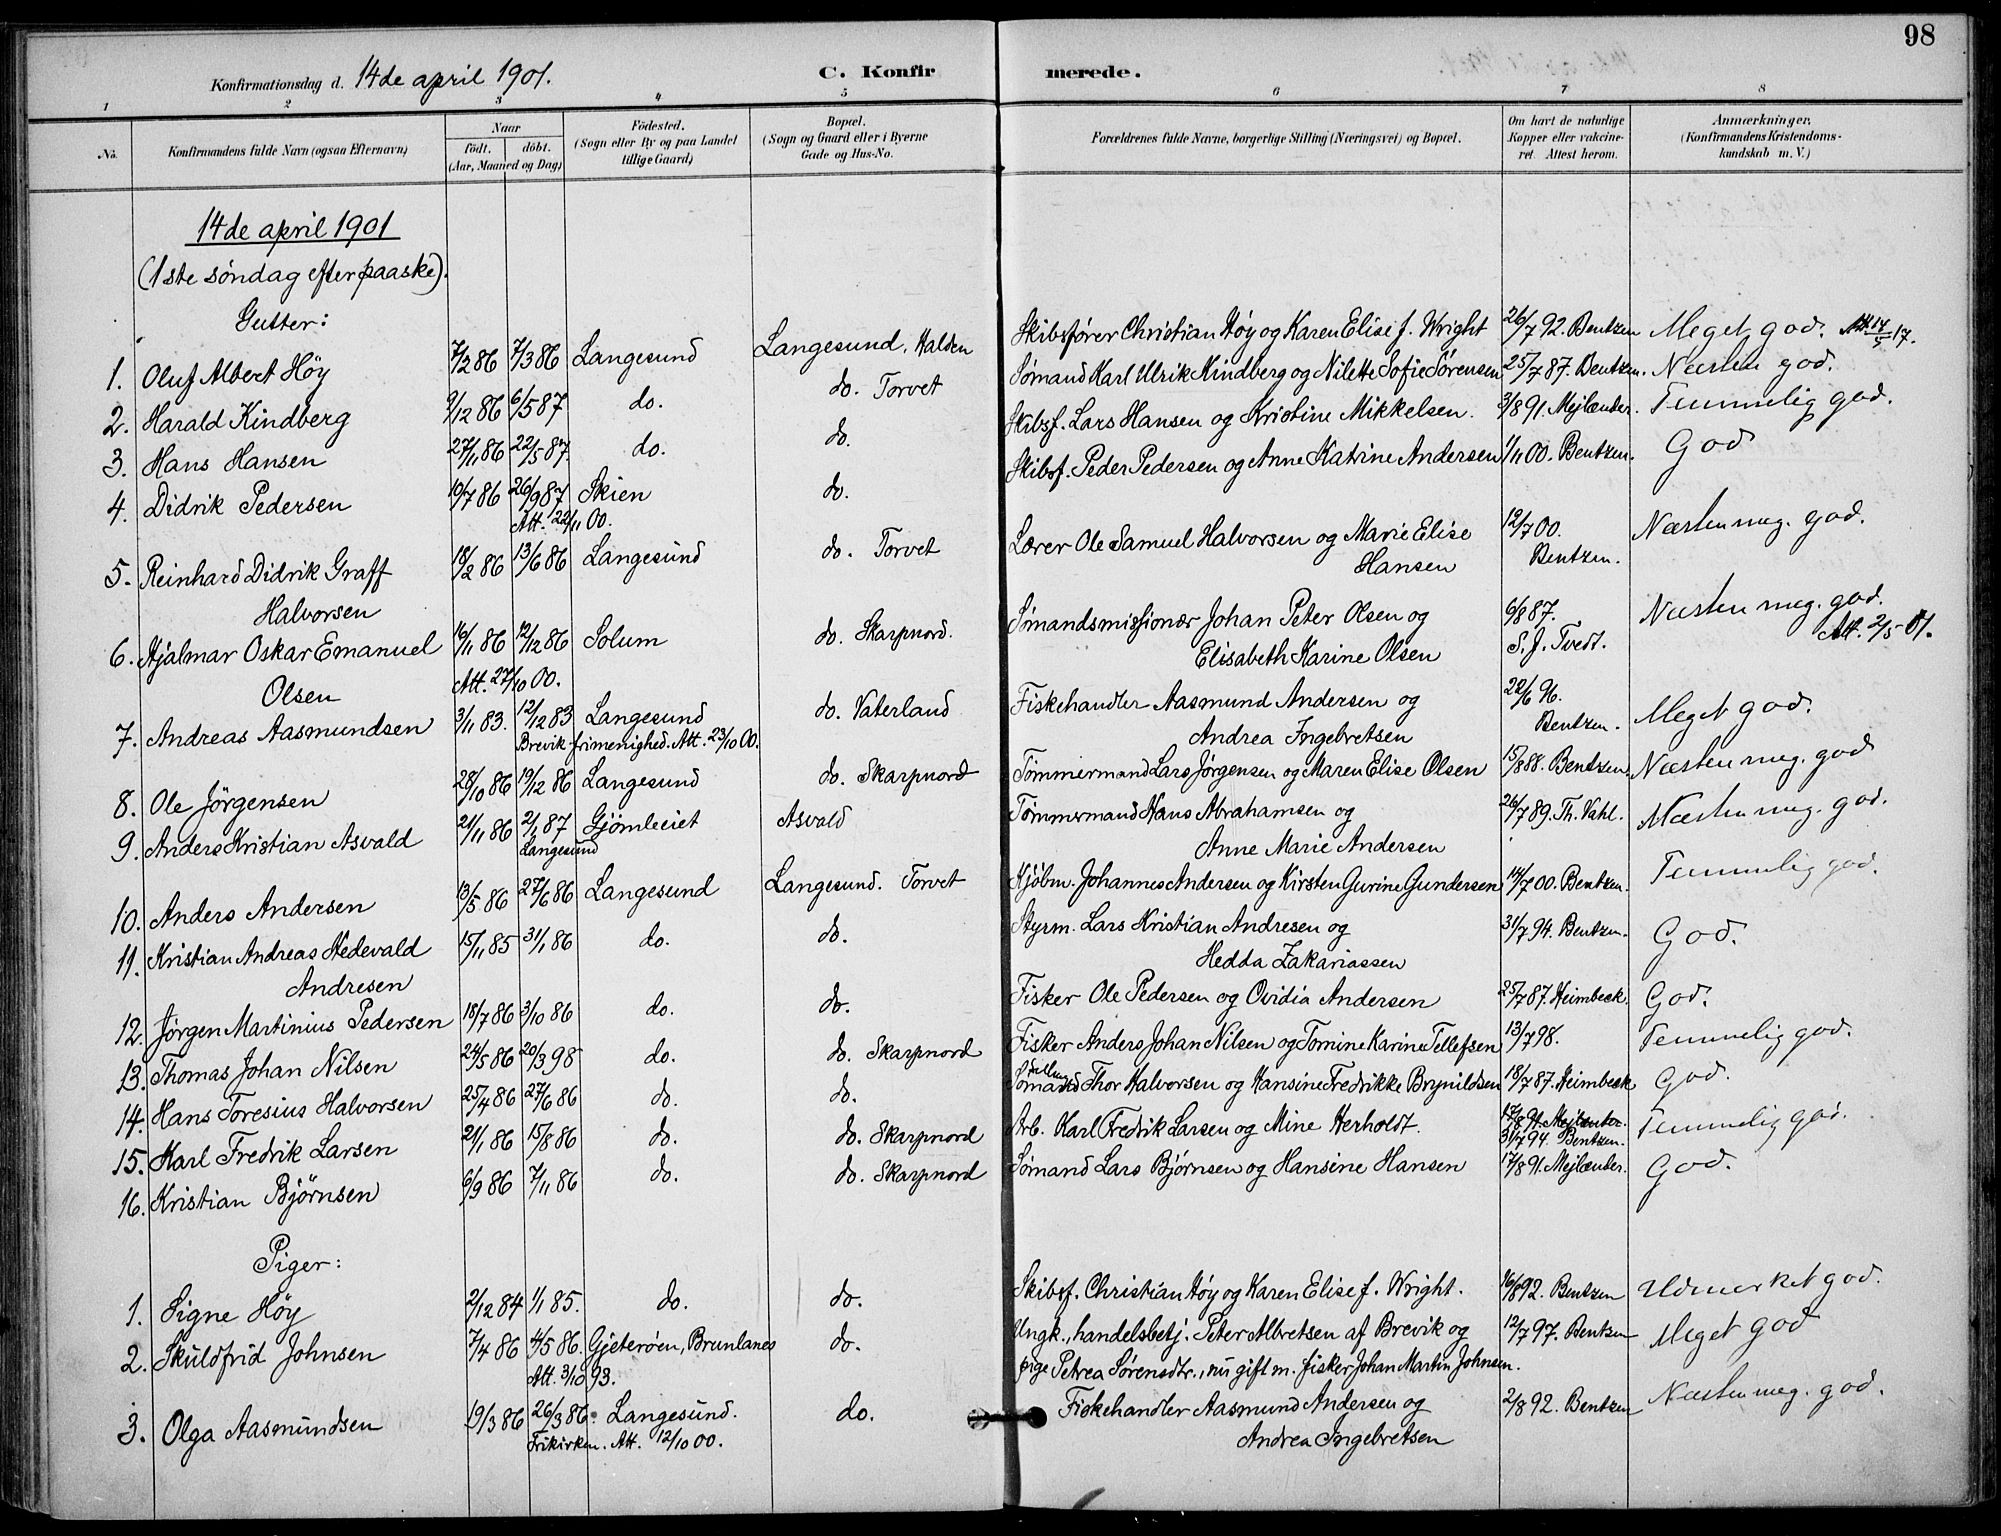 98
Konfirmationsdag d. 14de april 1901. C. Konfir merede.
1 2 3 4 5 6 7 8
No. Konfirmandens fulde Navn (ogsaa Efternavn) Naar født. døbt. (Aar, Maaned og Dag) Fødested. (Sogn eller By og paa Landet tillige Gaard) Bopæl. (Sogn og Gaard eller i Byerne Gade og Hus-No. Forældrenes fulde Navne, borgerlige Stilling (Næringsvei) og Bopæl. Om havt de naturlige Kopper eller vakcineret. Attest herom. Anmærkninger. (Konfirmandens Kristendomskundskab m. V.)
14de april 1901
(1ste søndag efter paaske).
Gutter:
1. Oluf Albert Höy 7/2 86 7/3 86 Langesund Langesund. Halden Skibsfører Christian Høy og Karen Elise f. Wright 26/7 92. Bentzen Meget god. Att. 14/5 17.
2. Harald Kindberg 9/12 86 6/5 87 do. do. Torvet Sømand Karl Ulrik Kindberg og Nilette Sofie Sørensen 25/7 87. Bentzen. Næsten god.
3. Hans Hansen 27/11 86 22/5 87. do. do. Skibsf. Lars Hansen og Kristine Mikkelsen. 3/8 91. Mejlænder. Temmelig god.
4. Didrik Pedersen 10/7 86 26/9 87 Skien do. Skibsf. Peder Pedersen og Anne Katrine Andersen 1/11 00. Bentzen. God
Att. 22/11 00.
5. Reinhard Didrik Graff 18/2 86 13/6 86 Langesund do. Torvet Lærer Ole Samuel Halvorsen og Marie Elise 12/7 00. Næsten meg. god.
Halvorsen Hansen Bentzen.
6. Hjalmar Oskar Emanuel 16/11 86 12/12 86 Solum do. Skarpnord. Sømandsmissionær Johan Peter Olsen og 6/8 87. Næsten meg. god.
Olsen Att. 27/10 00. Elisabeth Karine Olsen S. J. Tvedt. Att. 2/5 01.
7. Andreas Aasmundsen 3/11 83. 12/12 83 Langesund do. Vaterland Fiskehandler Aasmund Andersen og 22/6 96. Meget god.
Brevik frimenighed. Att. 23/10 00. Andrea Ingebretsen Bentzen.
8. Ole Jørgensen 28/10 86 19/12 86 Langesund do. Skarpnord Tømmermand Lars Jørgensen og Maren Elise Olsen 15/8 88. Bentzen. Næsten meg. god
9. Anders Kristian Asvald 21/11 86 2/1 87 Gjömleiet Asvald Tømmermand Hans Abrahamsen og 26/7 89. Th. Vahl. Næsten meg. god.
Langesund Anne Marie Andersen
10. Anders Andersen 13/5 86 27/6 86 Langesund Langesund. Torvet Kjøbm. Johannes Andersen og Kirsten Gurine Gundersen 14/7 00. Bentzen. Temmelig god.
11. Kristian Andreas Hedevald 15/11 85 31/1 86 do. do. Styrm. Lars Kristian Andresen og 31/7 94. Bentzen. God.
Andresen Hedda Zakariassen
12. Jørgen Martinius Pedersen 18/7 86 3/10 86 do. do. Fisker Ole Pedersen og Ovidia Andersen 25/7 87. Heimbeck. God.
13. Thomas Johan Nilsen 24/5 86 20/3 98 do. do. Skarpnord Fisker Anders Johan Nilsen og Tomine Karine Tellefsen 13/7 98. Temmelig god.
14. Hans Toresius Halvorsen 25/4 86 27/6 86 do. do. Sømand Thor Halvorsen og Hansine Fredrikke Brynildsen 18/7 87. Heimbeck God.
15. Karl Fredrik Larsen 21/1 86 15/8 86 do. do. Skarpnord Arb. Karl Fredrik Larsen og Mine Herholdt. 17/8 91. Mejlænder. 31/7 94. Bentzen. Temmelig god.
16. Kristian Bjørnsen 6/9 86 7/11 86 do. do. Skarpnord Sømand Lars Bjørnsen og Hansine Hansen 17/8 91. Mejlænder. God.
Piger:
1. Signe Höy 2/12 84 1/1 85. do. do. Skibsf. Christian Høy og Karen Elise f. Wright. 16/8 92. Bentzen Udmerket god.
2. Skuldfrid Johnsen 7/4 86 4/5 86. Gjeterøen, Brunlanes do. Ungk., handelsbetj. Peter Albretsen af Brevik og 12/7 97. Bentzen Meget god
Att. 3/10 93. pige Petrea Sørensdtr., nu gift m. fisker Johan Martin Johnsen.
3. Olga Aasmundsen 19/3 86 26/3 86. Langesund. do. Fiskehandler Aasmund Andersen og 2/8 92. Bentzen Næsten meg. god.
Frikirken. Att. 12/10 00. Andrea Ingebretsen